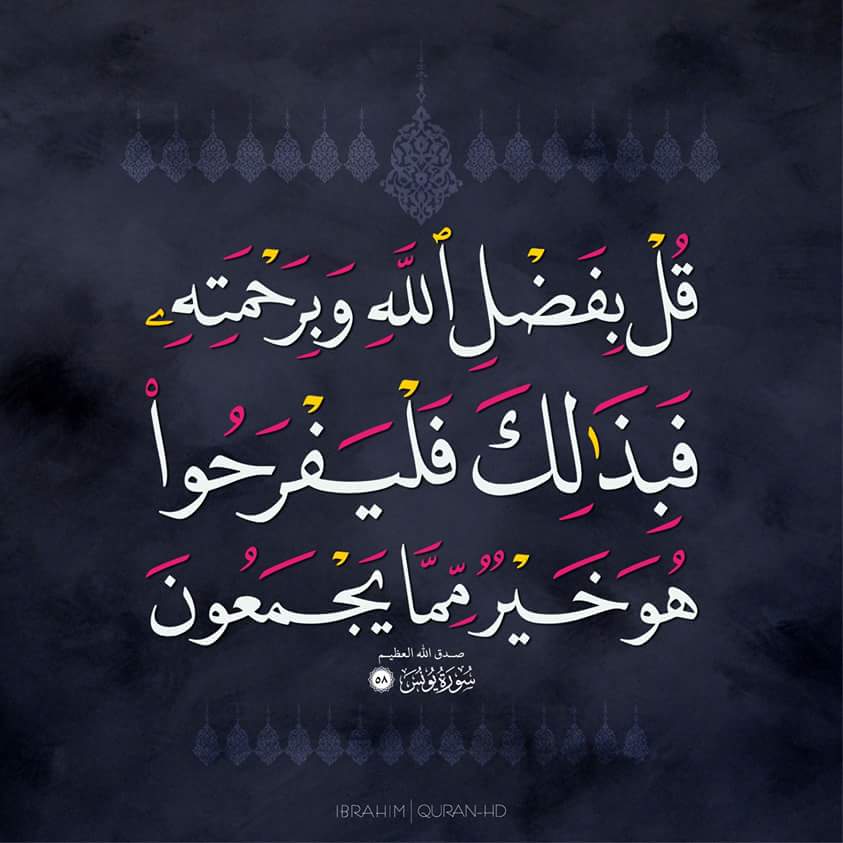 قُلْ بِفَضْلِ ٱللَّهِ وَبِرَحْمَتِهِۦ
فَبِذَٰلِكَ فَلْيَفْرَحُوا۟
هُوَ خَيْرٌ مِّمَّا يَجْمَعُونَ
صدق الله العظيم
سُورَةُ يُونُسَ ٥٨
IBRAHIM | QURAN-HD